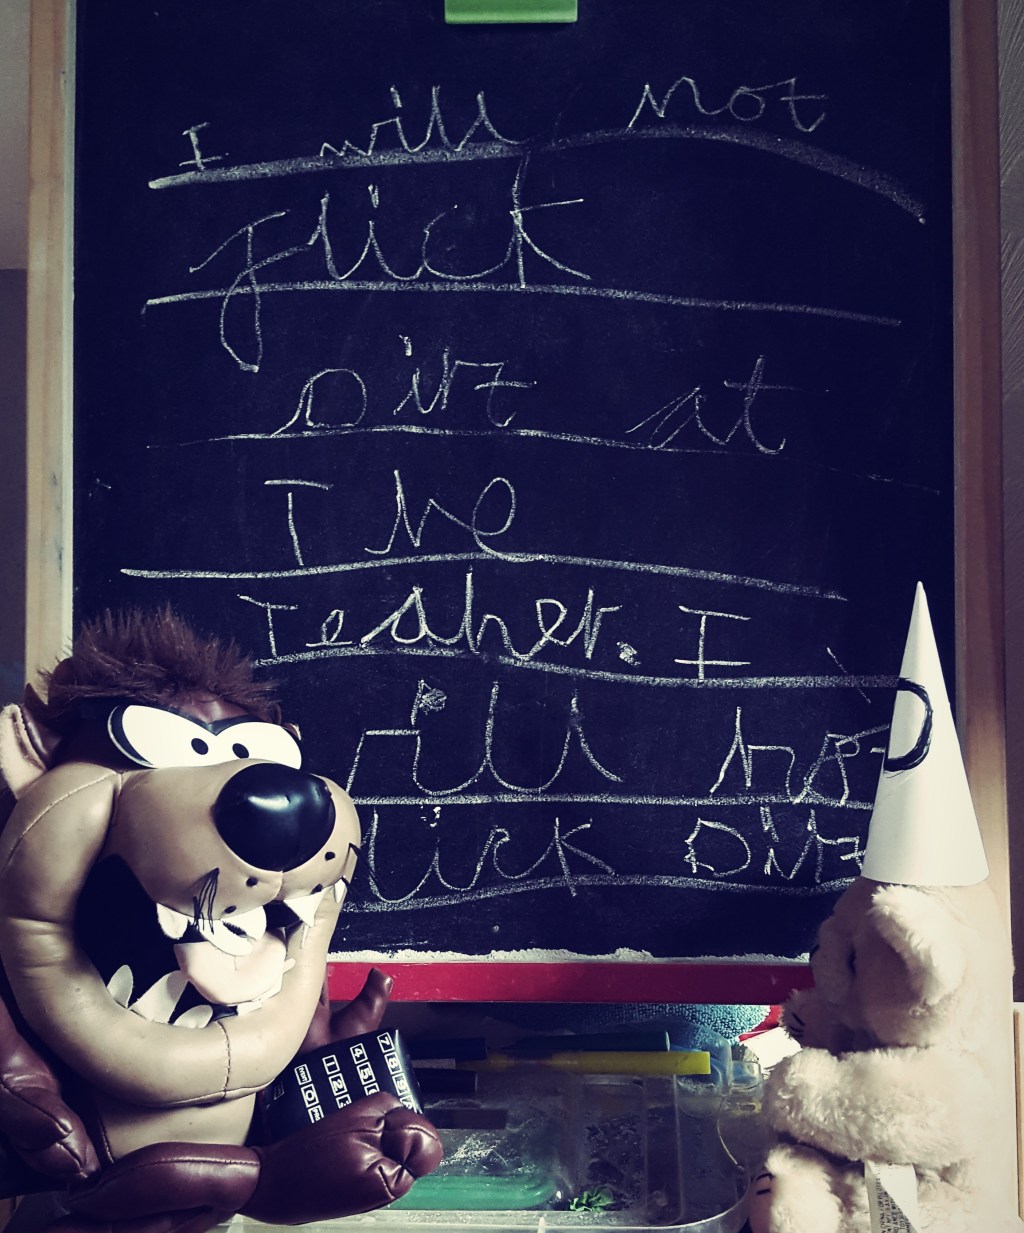 I will not
flick
Dirt at
The
Teaher. I
will not
lick Dirt
D
7 8 9
4 5 6
1 2 3
0